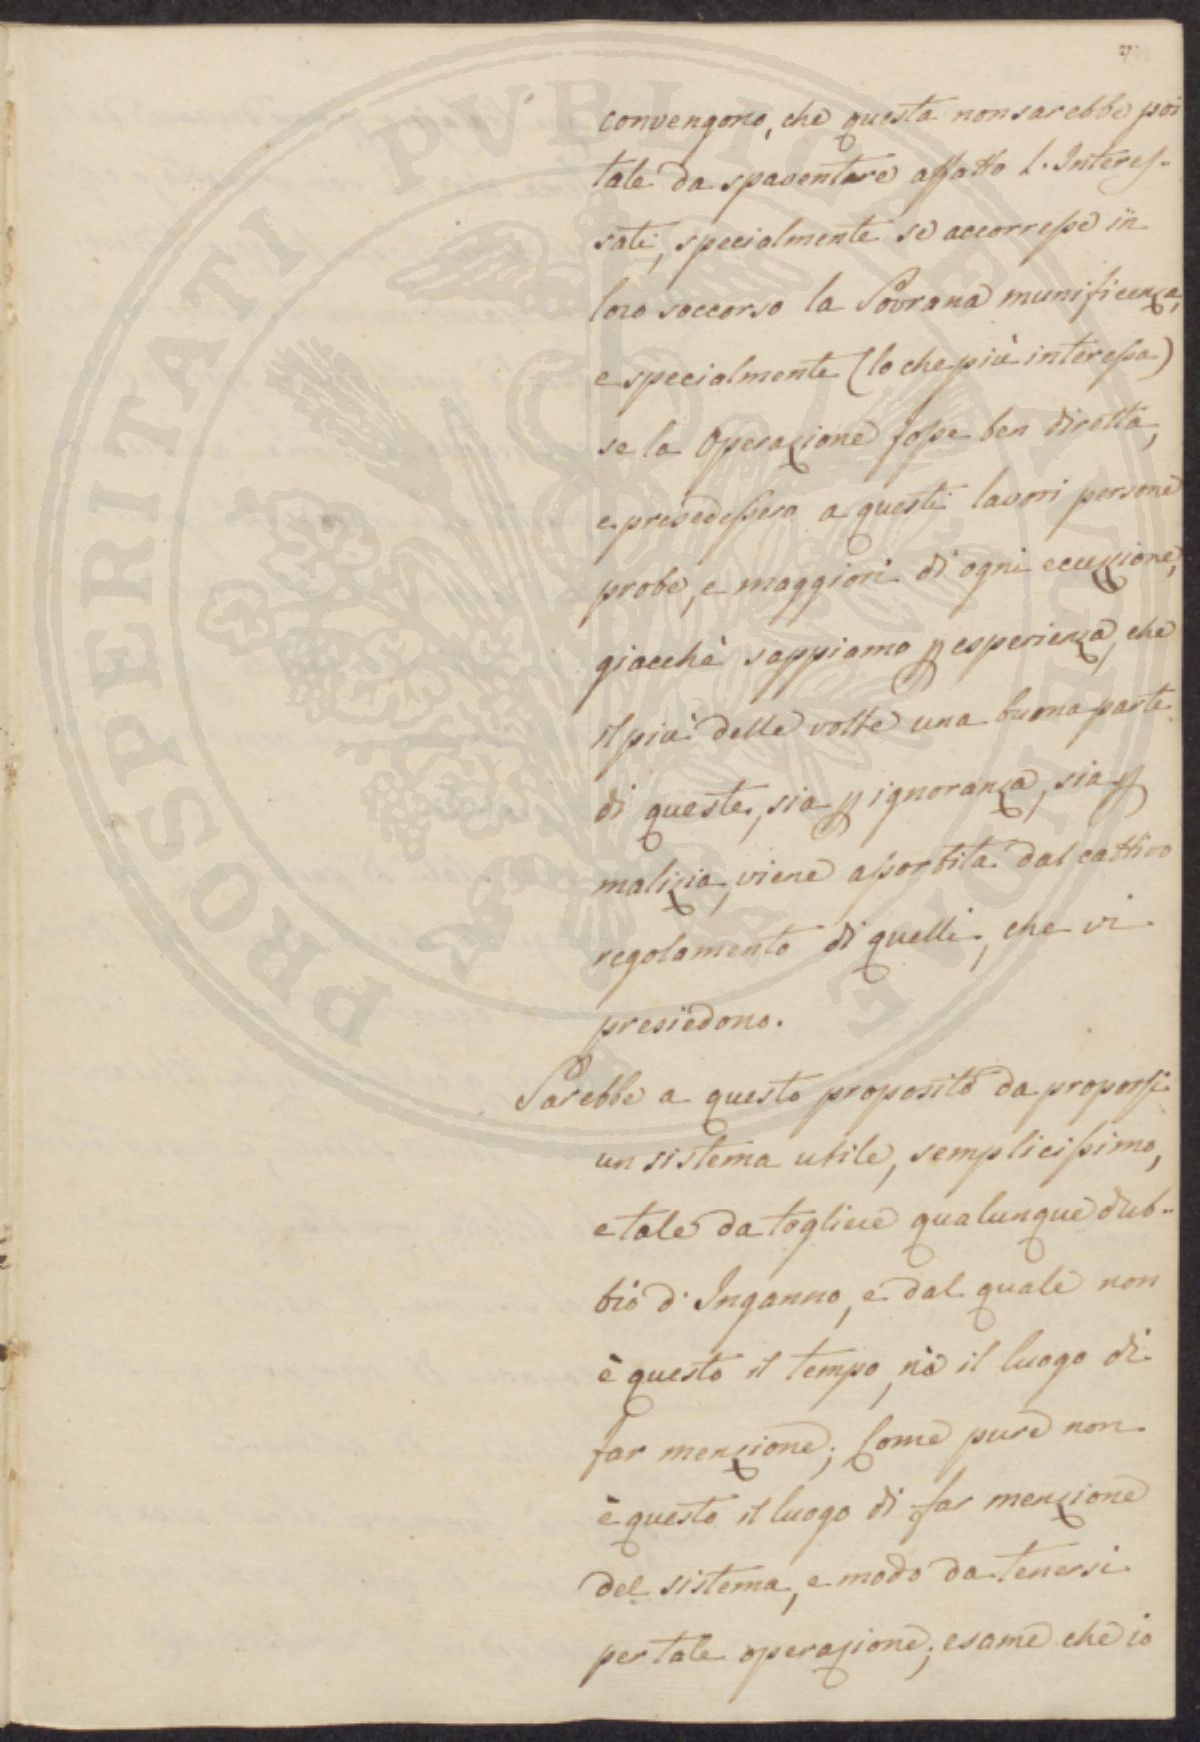 27
convengono, che questa non sarebbe poi
tale da spaventare affatto l'Interes-
sati, specialmente se accorresse in
loro soccorso la Sovrana munificenza,
e specialmente (lo che più interessa)
se la Operazione fosse ben diretta,
e presedessero a questi lavori persone
probe, e maggiori di ogni eccezzione,
giacchè sappiamo p esperienza, che
il più delle volte una buona parte
di queste, sia p ignoranza, sia p
malizia, viene assorbita dal cattivo
regolamento di quelli, che vi
presiedono.
Sarebbe a questo proposito da proporsi
un sistema utile, semplicissimo,
e tale da togliere qualunque dub-
bio d'Inganno, e dal quale non
è questo il tempo, nè il luogo di
far menzione; Come pure non
è questo il luogo di far menzione
del sistema, e modo da tenersi
per tale operazione; esame che io
PROSPERITATI PVBLICAE AVGENDAE